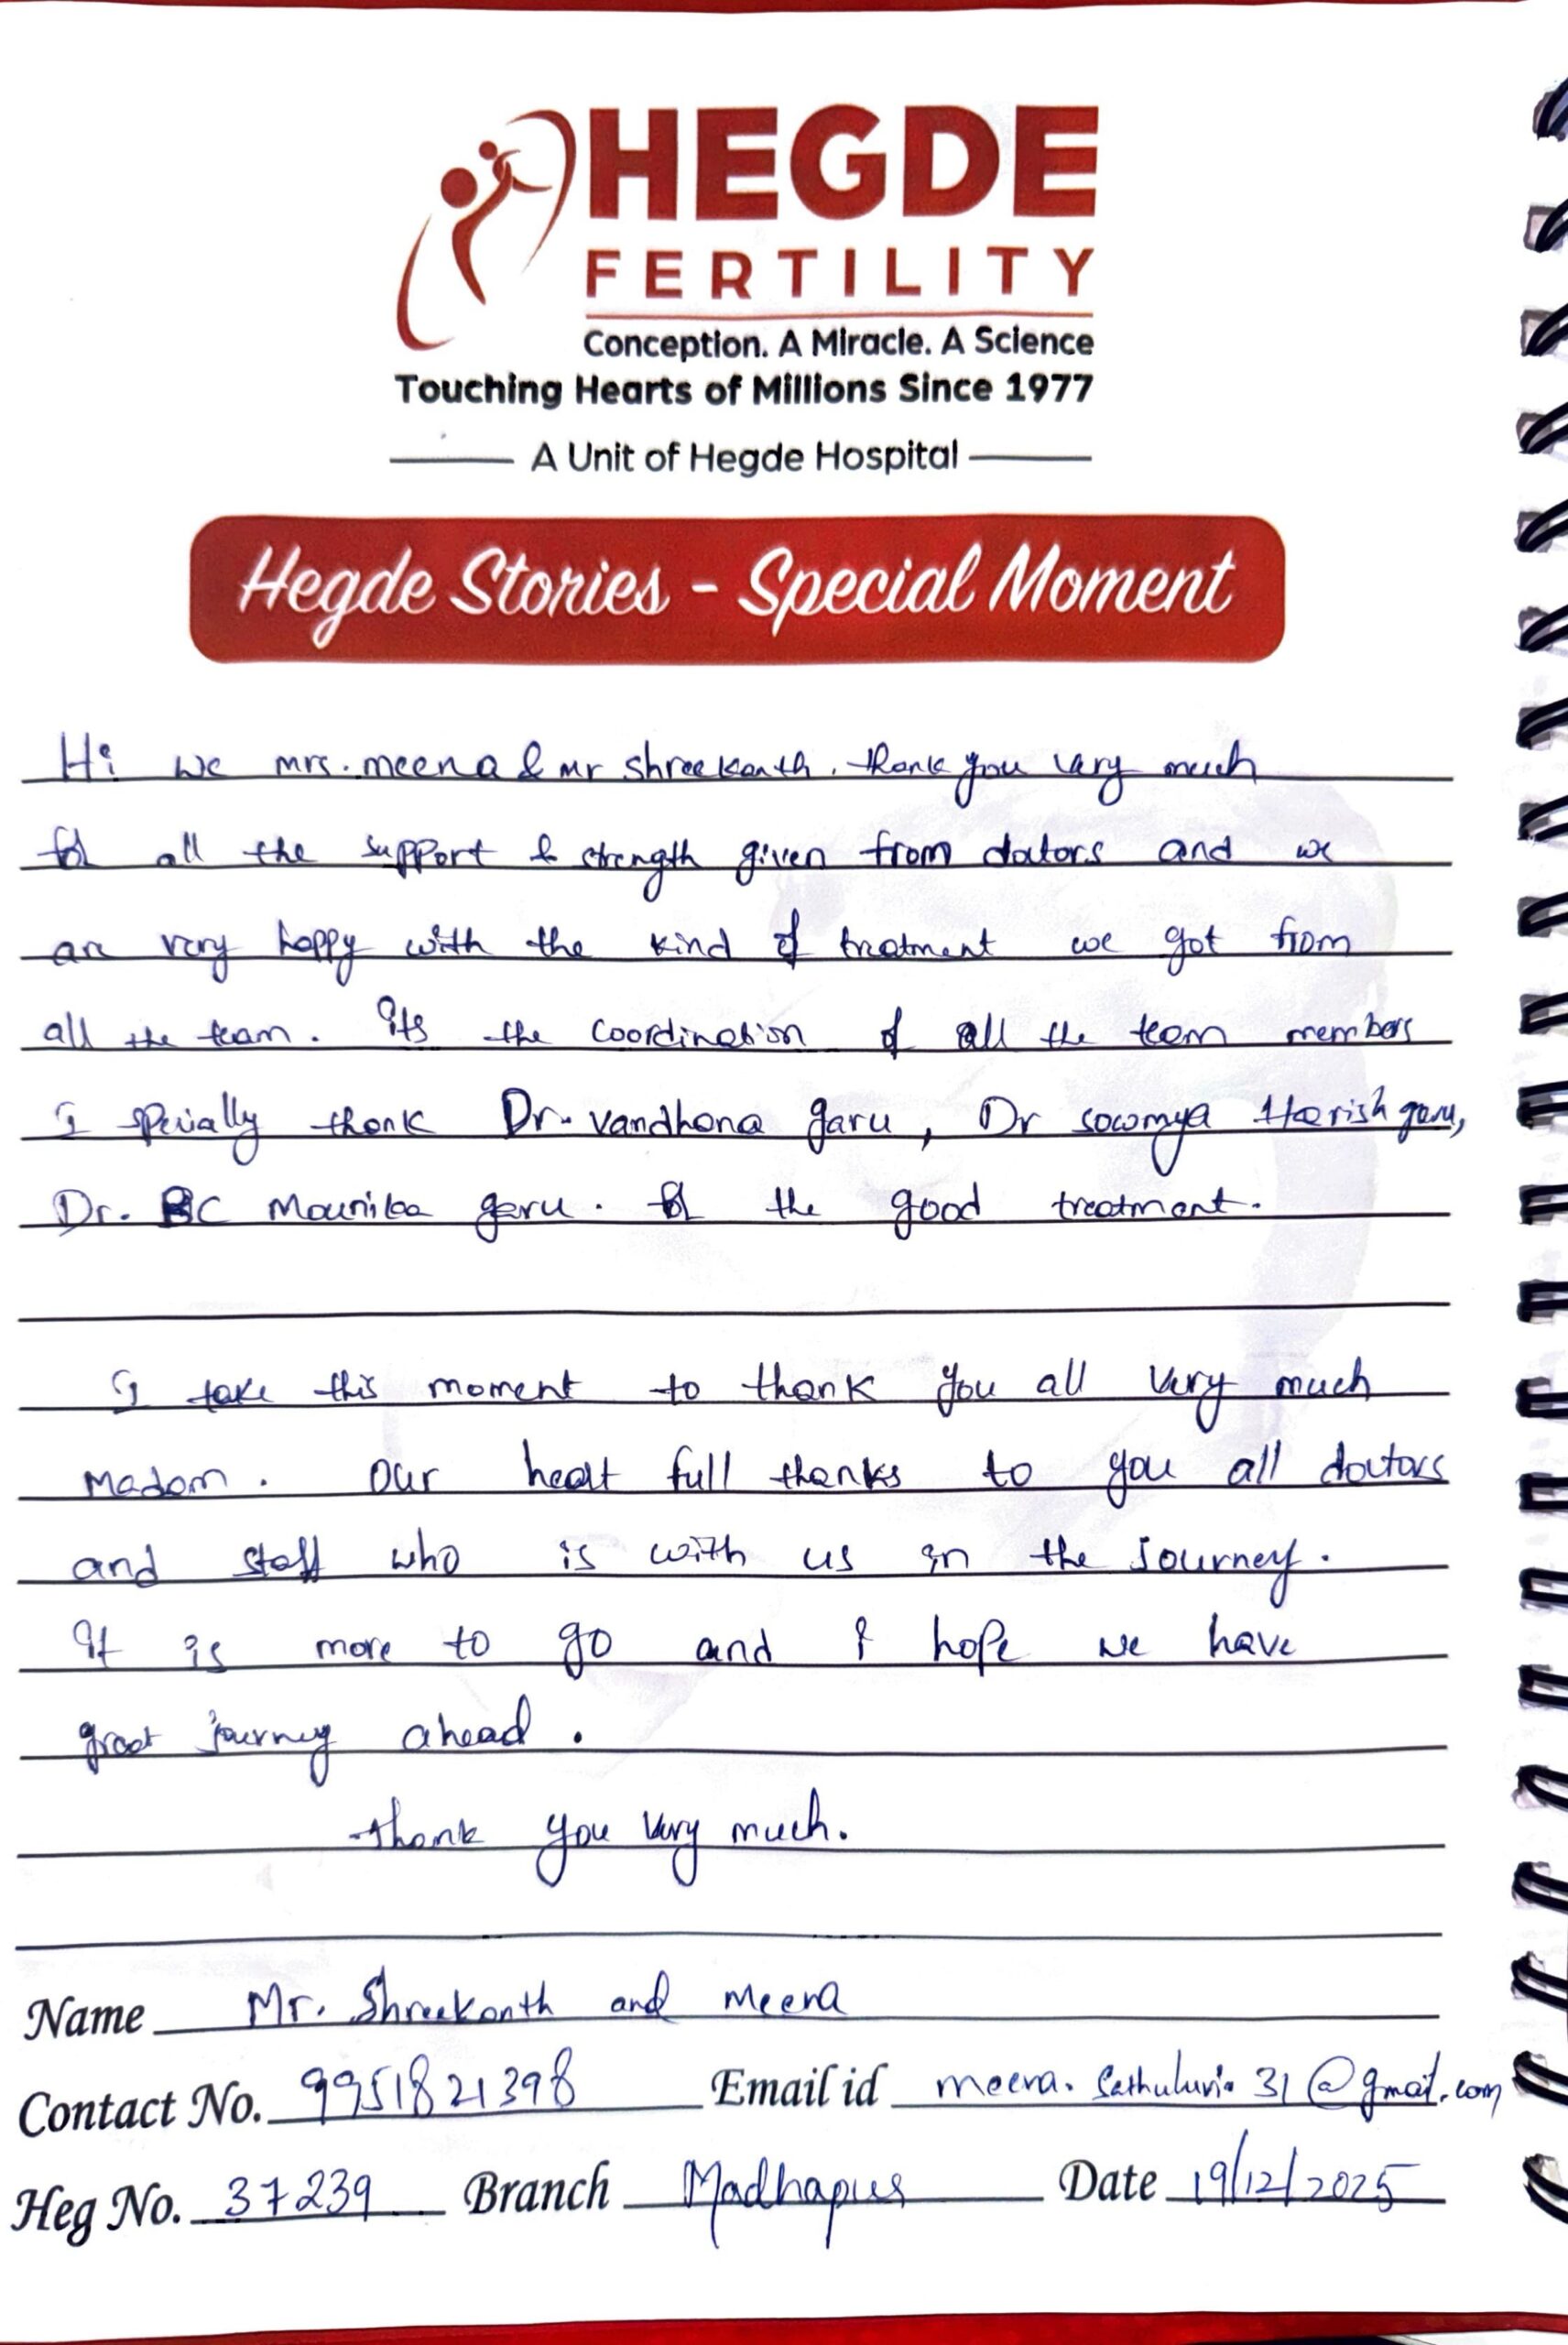 HEGDE
FERTILITY
Conception. A Miracle. A Science
Touching Hearts of Millions Since 1977
A Unit of Hegde Hospital
Hegde Stories - Special Moment
Hi we mrs. meena & mr shreekanth. thank you very much
for all the support & strength given from doctors and we
are very happy with the kind of treatment we got from
all the team. Its the coordination of all the team members
I specially thank Dr. vandhana garu, Dr sowmya Harish garu,
Dr. BC Mounika garu. for the good treatment.
I take this moment to thank you all very much
Madam. Our heart full thanks to you all doctors
and staff who is with us in the journey.
It is more to go and I hope we have
great journey ahead.
thank you very much.
Name Mr. Shreekanth and Meena
Contact No. 9951821398 Email id 31@gmail.com
Heg No. 37239 Branch Madhapur Date 19/12/2025